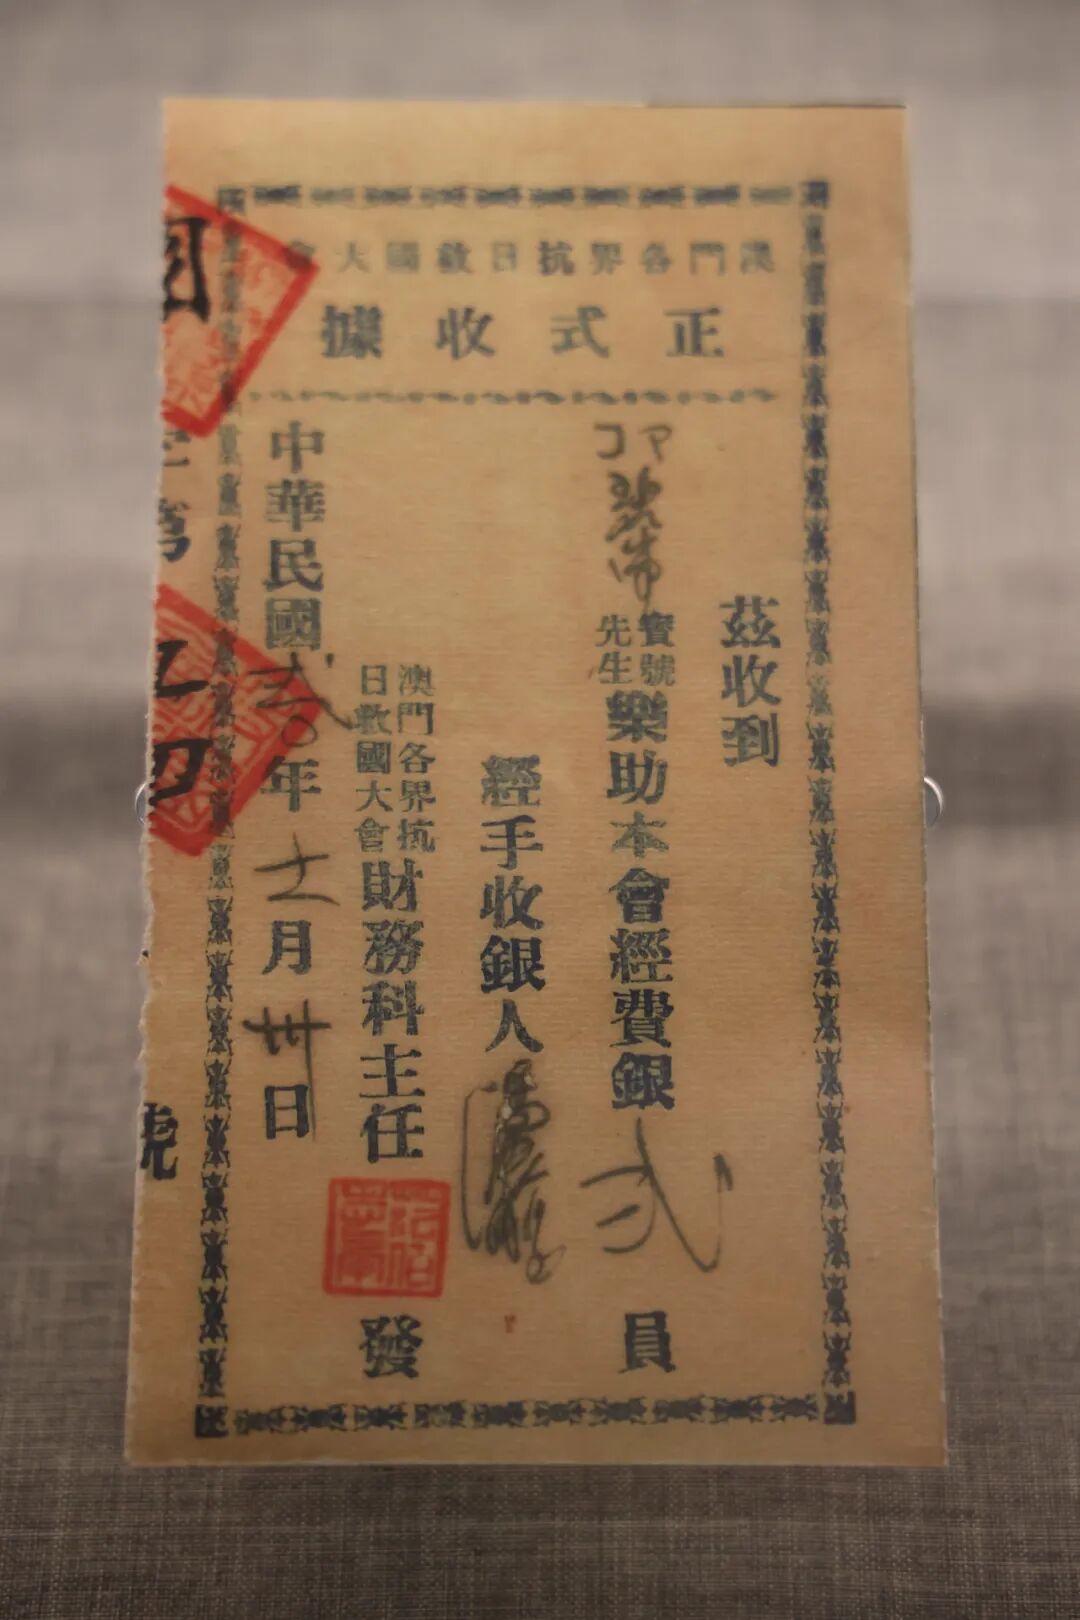 澳門各界抗日救國大會
正式收據
茲收到
寶號
先生
樂助本會經費銀弍員
經手收銀人
澳門各界抗
日救國大會
財務科主任
發
中華民國弍〇年十二月卅日
號